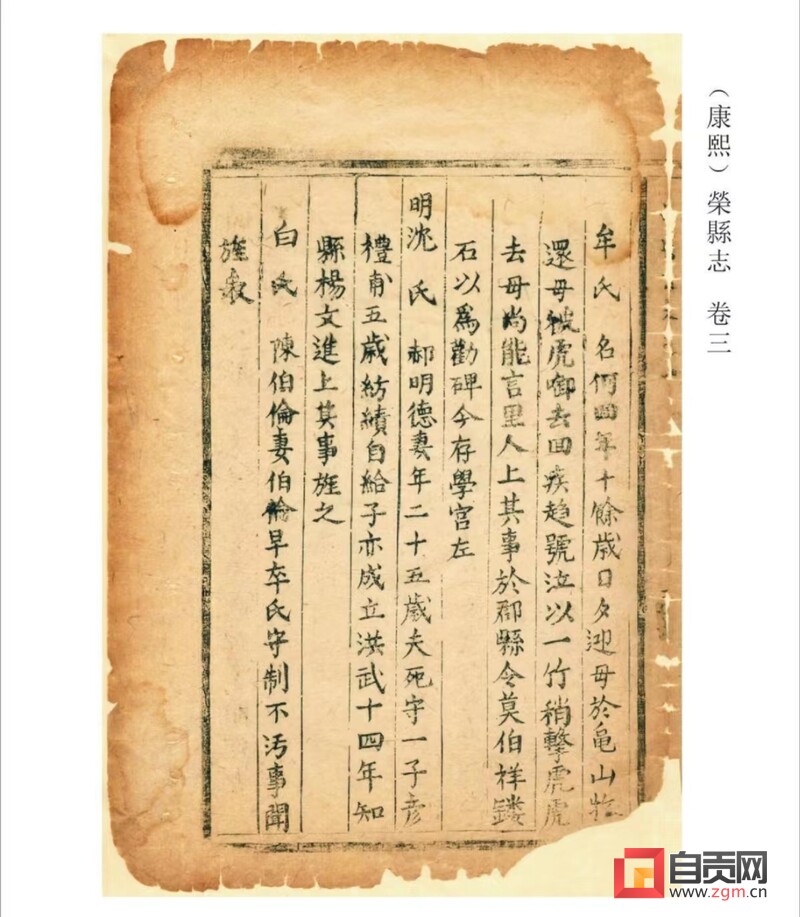 （康熙）榮縣志 卷三
牟氏 名何四年十餘歲日夕迎母於亀山牧
還母被虎啣去回疾趋號泣以一竹稍擊虎虎
去母尚能言里人上其事於郡縣令莫伯祥鏤
石以為勸碑今存學宫左
明沈 氏 郝明德妻年二十五歲夫死守一子彦
禮甫五歲紡績自給子亦成立洪武十四年知
縣楊文進上其事旌之
白氏 陳伯倫妻伯倫早卒氏守制不汚事聞
旌表
自贡网
www.zgm.cn